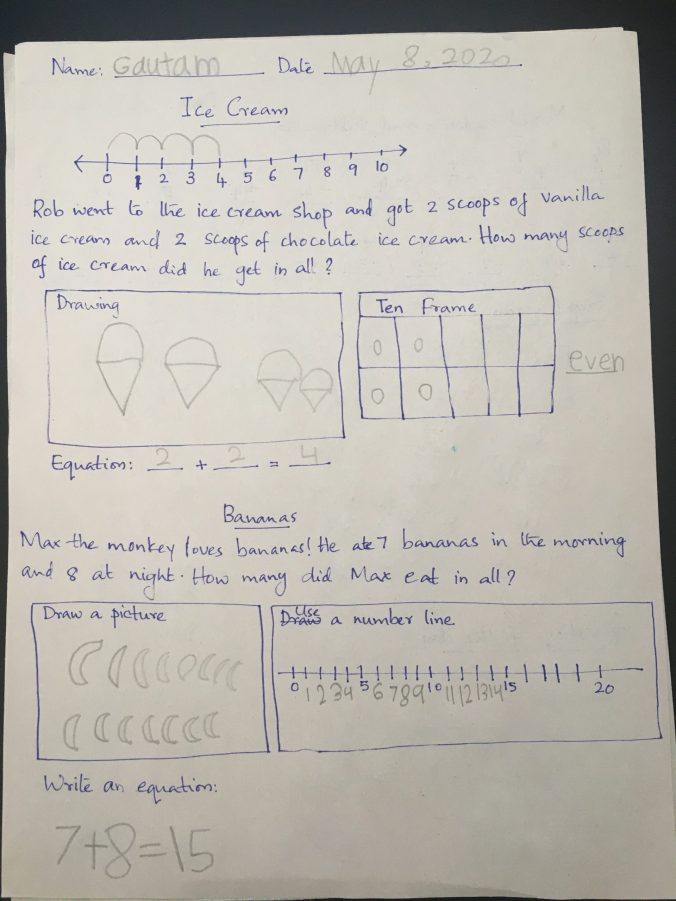 Name: Gautam Date May 8, 2020
Ice Cream
0 1 2 3 4 5 6 7 8 9 10
Rob went to the ice cream shop and got 2 scoops of vanilla
ice cream and 2 scoops of chocolate ice cream. How many scoops
of ice cream did he get in all?
Drawing
Ten Frame
even
Equation: 2 + 2 = 4
Bananas
Max the monkey loves bananas! He ate 7 bananas in the morning
and 8 at night. How many did Max eat in all?
Draw a picture
Use
Draw a number line
0 1 2 3 4 5 6 7 8 9 10 11 12 13 14 15 20
Write an equation:
7+8=15